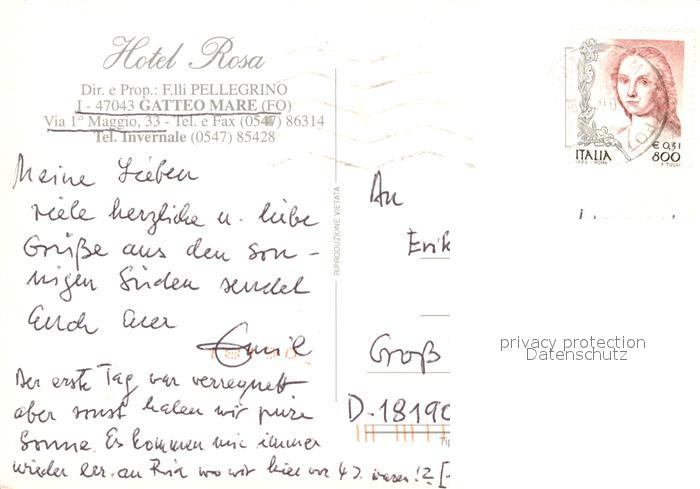 Hotel Rosa
Dir. e Prop.: F.lli PELLEGRINO
I - 47043 GATTEO MARE (FO)
Via 1° Maggio, 33 - Tel. e Fax (0547) 86314
Tel. Invernale (0547) 85428
Meine Lieben
viele herzliche u. liebe
Grüße aus den son-
nigen Süden sendet
Euch Euer
Emil
Der erste Tag war verregnet
aber sonst haben wir pure
Sonne. Es kommen mir immer
wieder an wo wir hier vor 4 J. waren!
RIPRODUZIONE VIETATA
€ 0,31
ITALIA 800
F. TULLI
An
Erik
Groß
D-18190
privacy protection
Datenschutz